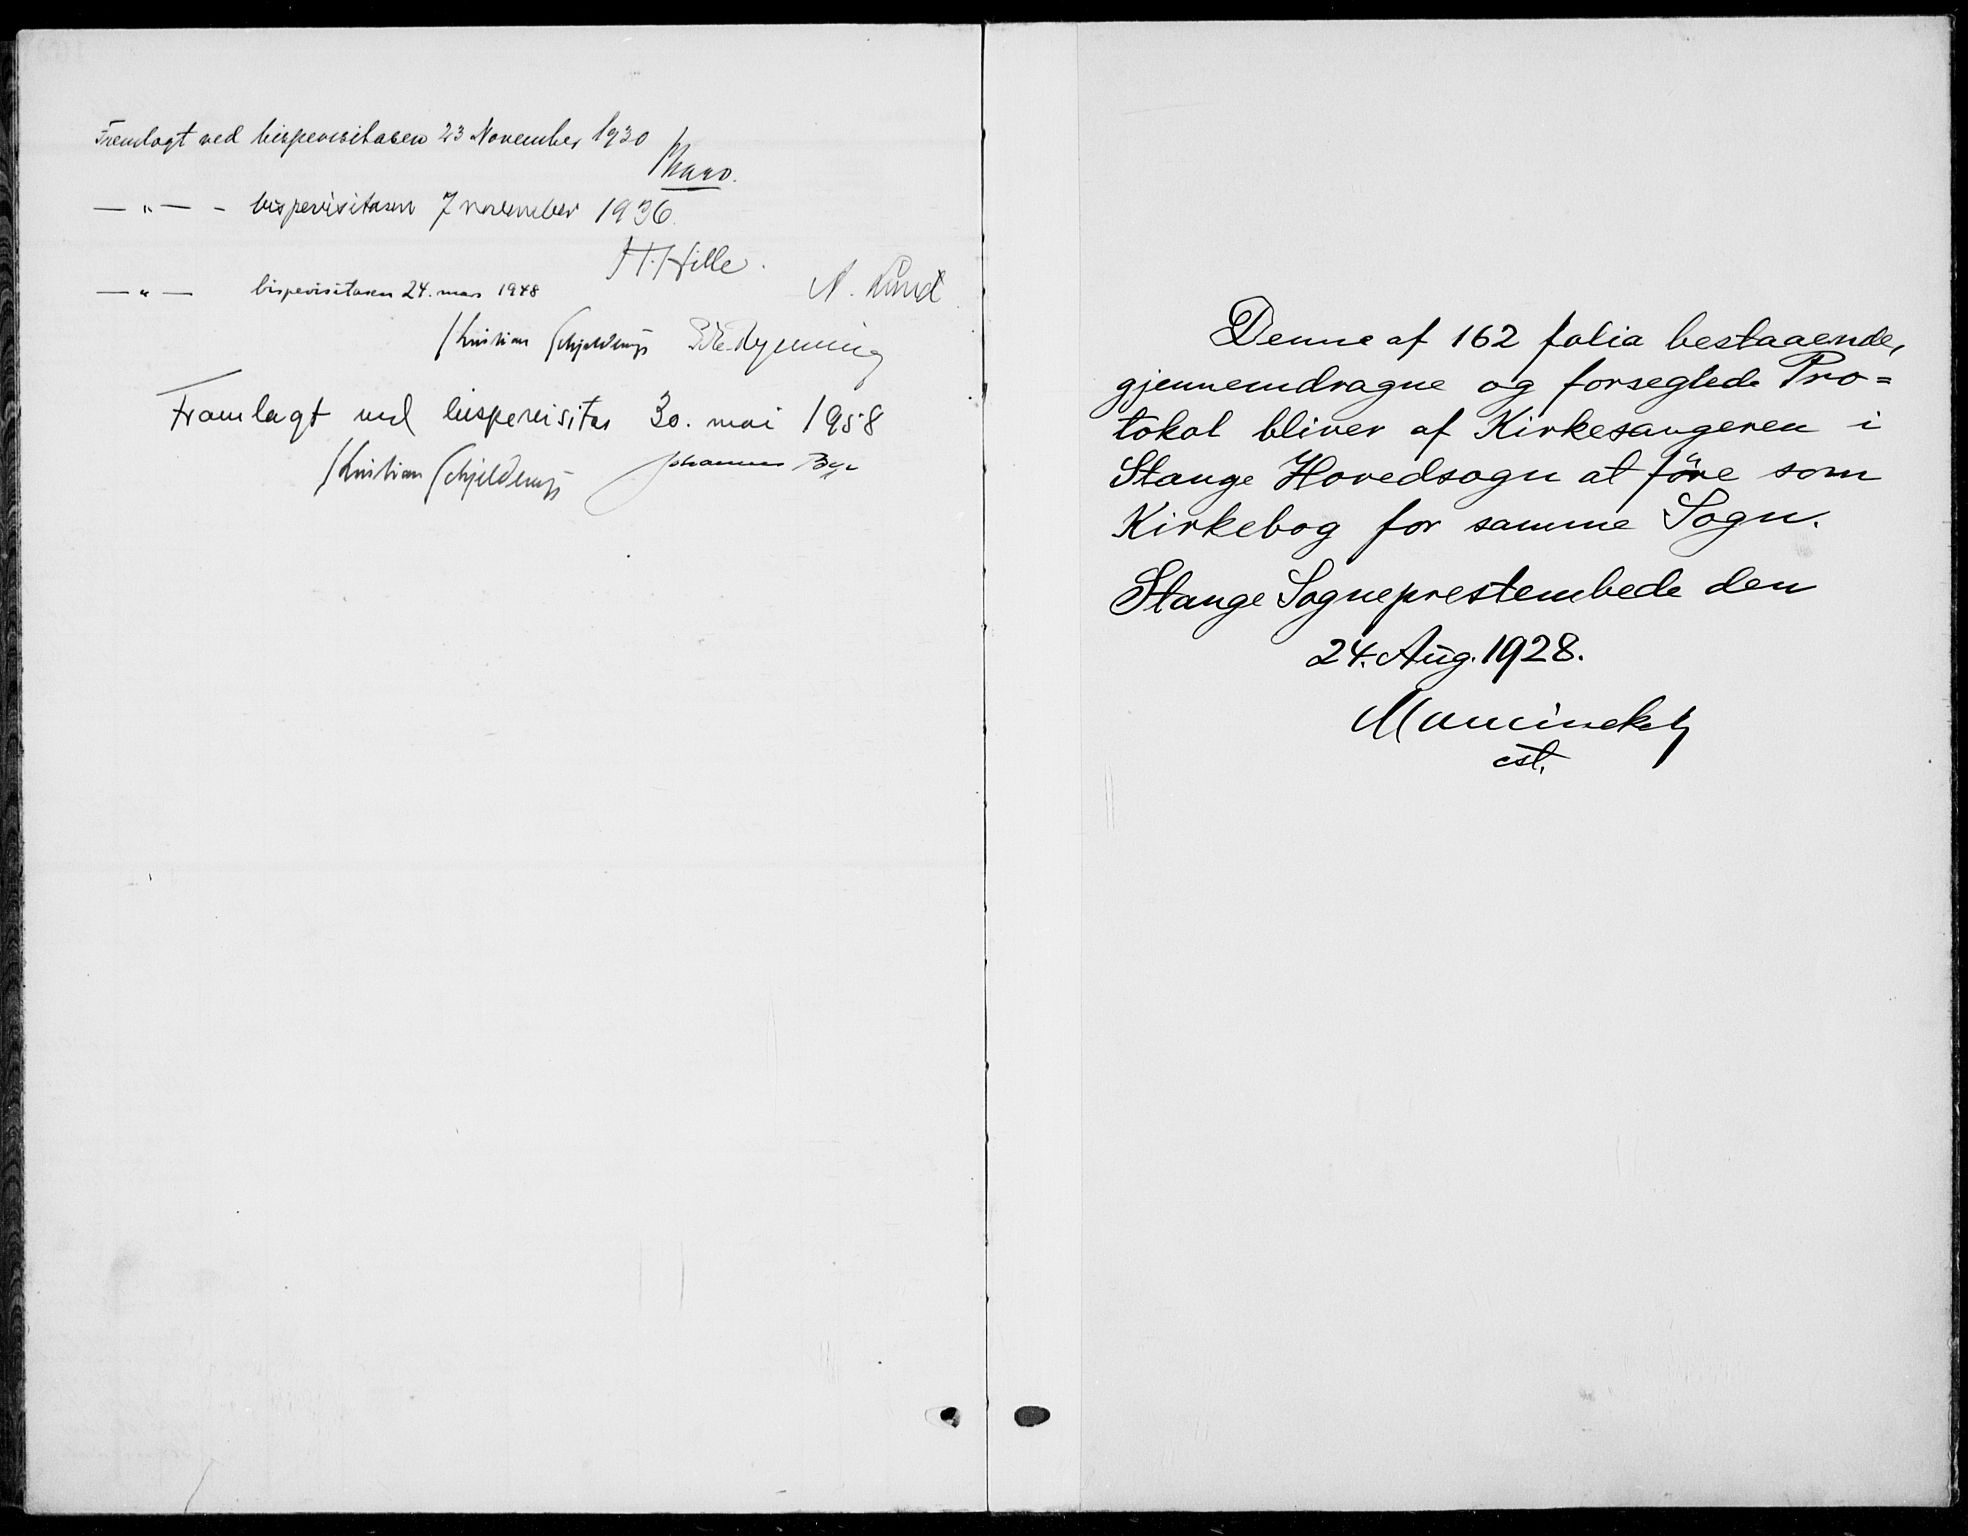 Fremlagt ved bispevisitasen 23 November 1930
— „ — - bispevisitasen 7 november 1936.
H. Hille.
— „ — bispevisitasen 24. mars 1948
N. Lund
Kristian Schjelderup
Framlagt ved bispevisitas 30. mai 1958
Kristian Schjelderup Johannes Bye
Denne af 162 folia bestaaende,
gjennemdragne og forseglede Pro=
tokol bliver af Kirkesangeren i
Stange Hovedsogn at före som
Kirkebog for samme Sogn.
Stange Sogneprestembede den
24. Aug. 1928.
cst.